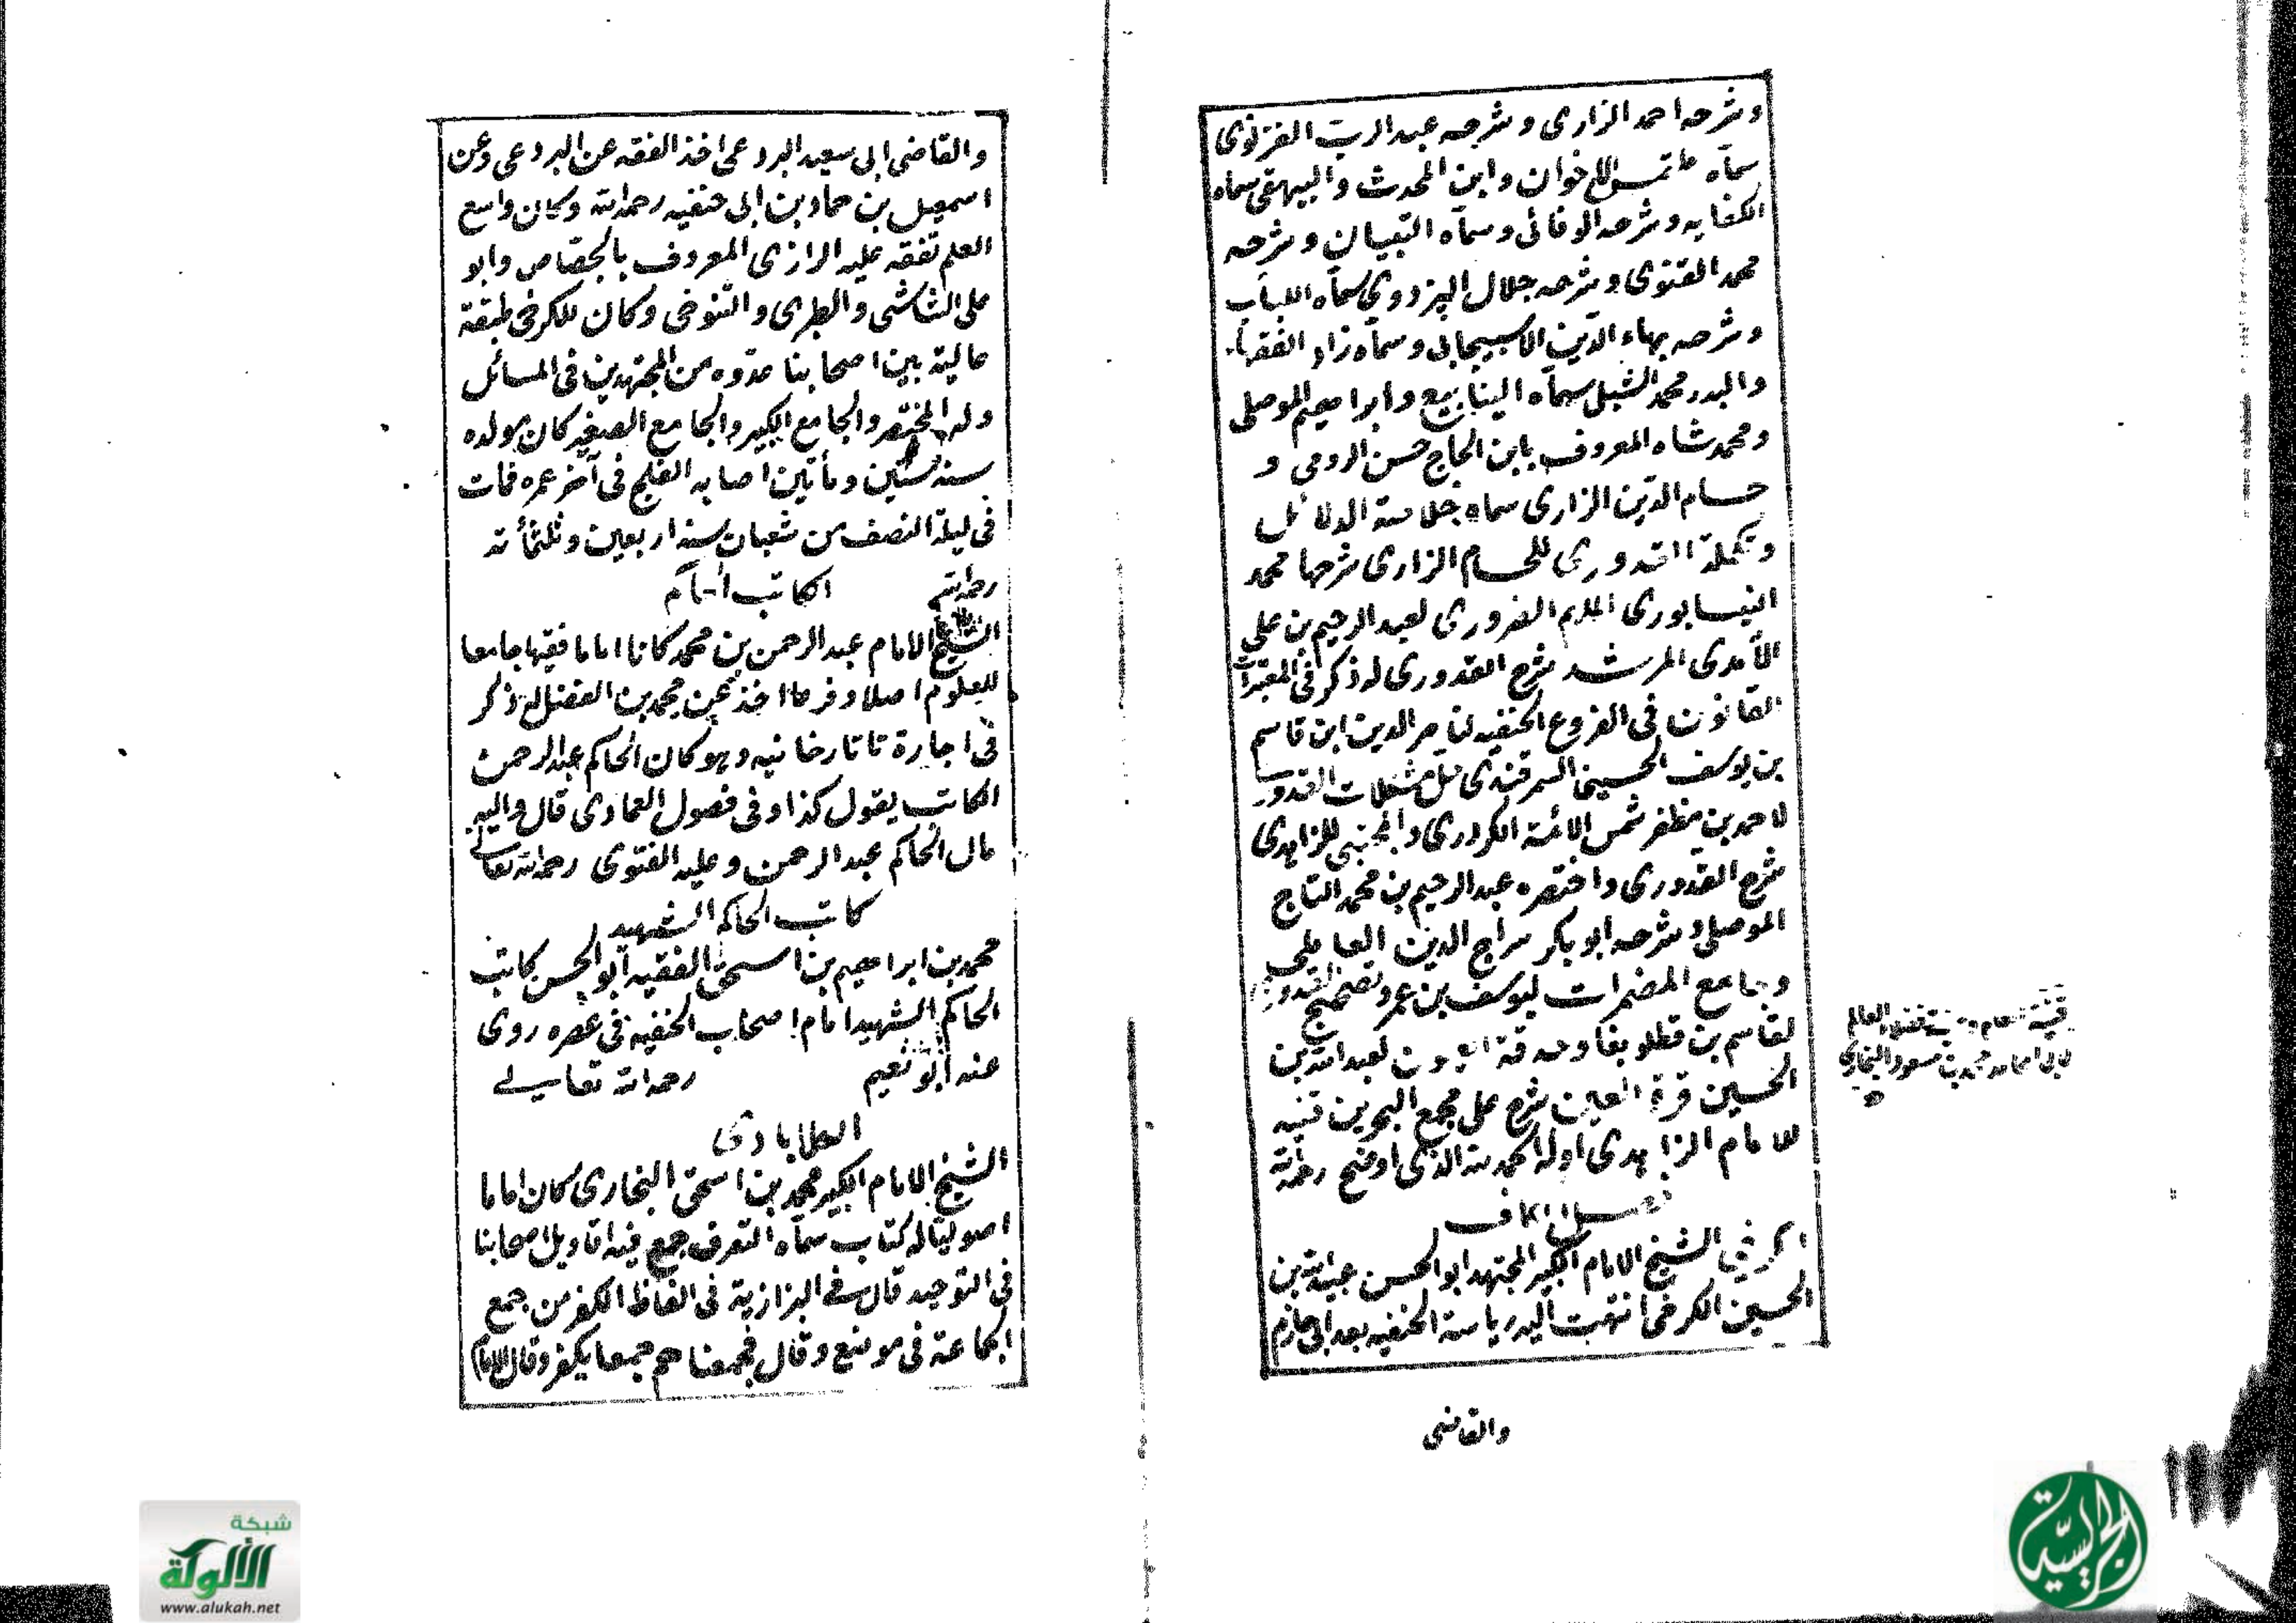 وشرحه احمد الزارى وشرحه عبد الرب الغزنوى
سماه ملتمس الاخوان وابن المحدث والبيهقى سماه
الكفايه وشرحه الوفائى وسماه التبيان وشرحه
محمد القنوى وشرحه جلال البزدوي سماه اللباب
وشرحه بهاء الدين الاسبيجابى وسماه زاد الفقهاء
والبدر محمد الشبلى سماه الينابيع وابراهيم الموصلى
ومحمد شاه المعروف بابن الحاج حسن الرومى و
حسام الدين الزارى سماه خلاصة الدلائل
وتكملة القدورى للحسام الزارى شرحها محمد
النيسابورى الملزم الضرورى لعبد الرحيم بن على
الآمدى المرشد شرح القدورى له ذكر فى المعتبرات
القانون فى الفروع الحنفيه لناصر الدين ابن قاسم
بن يوسف الحسينى السمرقندى حل مشكلات القدورى
لاحمد بن مظفر شمس الائمة الكردرى والمجتبى للزاهدى
شرح القدورى واختصره عبد الرحيم بن محمد التاج
الموصلى وشرحه ابو بكر سراج الدين العاملى
وجامع المضمرات ليوسف بن عمر وتصحيح القدورى
لقاسم بن قطلوبغا وحدقة العيون لعبد الله بن
الحسين قرة العين شرح على مجمع البحرين قنيه
للامام الزاهدى اوله الحمد لله الذى اوضح رحمه الله
فصل الكاف
الكرخي الشيخ الامام الكبير المجتهد ابو الحسن عبيد الله بن
الحسين الكرخى انتهت اليه رياسة الحنفيه بعد ابى حازم
والقاضى
قنية العالم
لابى محمد بن مسعود البخارى
والقاضى ابى سعيد البردعى اخذ الفقه عن البردعى وعن
اسمعيل بن حماد بن ابى حنفيه رحمه الله وكان واسع
العلم تفقه عليه الرازى المعروف بالجصاص وابو
على الشاشى والطبرى والتنوخى وكان للكرخى طبقة
عالية بين اصحابنا عدوه من المجتهدين فى المسائل
وله المختصر والجامع الكبير والجامع الصغير كان مولده
سنه ستين ومأتين اصابه الفلج فى آخر عمره فمات
فى ليلة النصف من شعبان سنه اربعين وثلثمأئه
رحمه الله الكاتب امام
الشيخ الامام عبد الرحمن بن محمد كانا اماما فقيها جامعا
للعلوم اصلا وفرعا اخذ عن محمد بن الفضل له ذكر
فى اجارة تاتارخانيه وهو كان الحاكم عبد الرحمن
الكاتب يقول كذا وفى فصول العمادى قال واليه
مال الحاكم عبد الرحمن وعليه الفتوى رحمه الله تعالى
كاتب الحاكم الشهيد
محمد بن ابراهيم بن اسحق الفقيه ابو الحسن كاتب
الحاكم الشهيد امام اصحاب الحنفيه فى عصره روى
عنه ابو نعيم رحمه الله تعالى
الكلابادى
الشيخ الامام الكبير محمد بن اسحق البخارى كان اماما
اصوليا له كتاب سماه التعرف جمع فيه اقاويل اصحابنا
فى التوحيد قال فى البزازية فى الفاظ الكفر من جمع
الجماعة فى موضع وقال فجمعناهم جمعا يكفر وقال الامام
شبكة
الألوكة
www.alukah.net